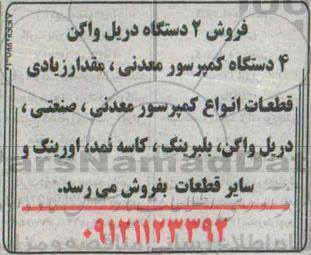 فروش ۲ دستگاه دریل واگن
۴ دستگاه کمپرسور معدنی ، مقدارزیادی
قطعات انواع کمپرسور معدنی ، صنعتی ،
دریل واگن، بلبرینگ ، کاسه نمد، اورینگ و
سایر قطعات بفروش می رسد.
۰۹۱۲۱۱۲۳۳۹۲